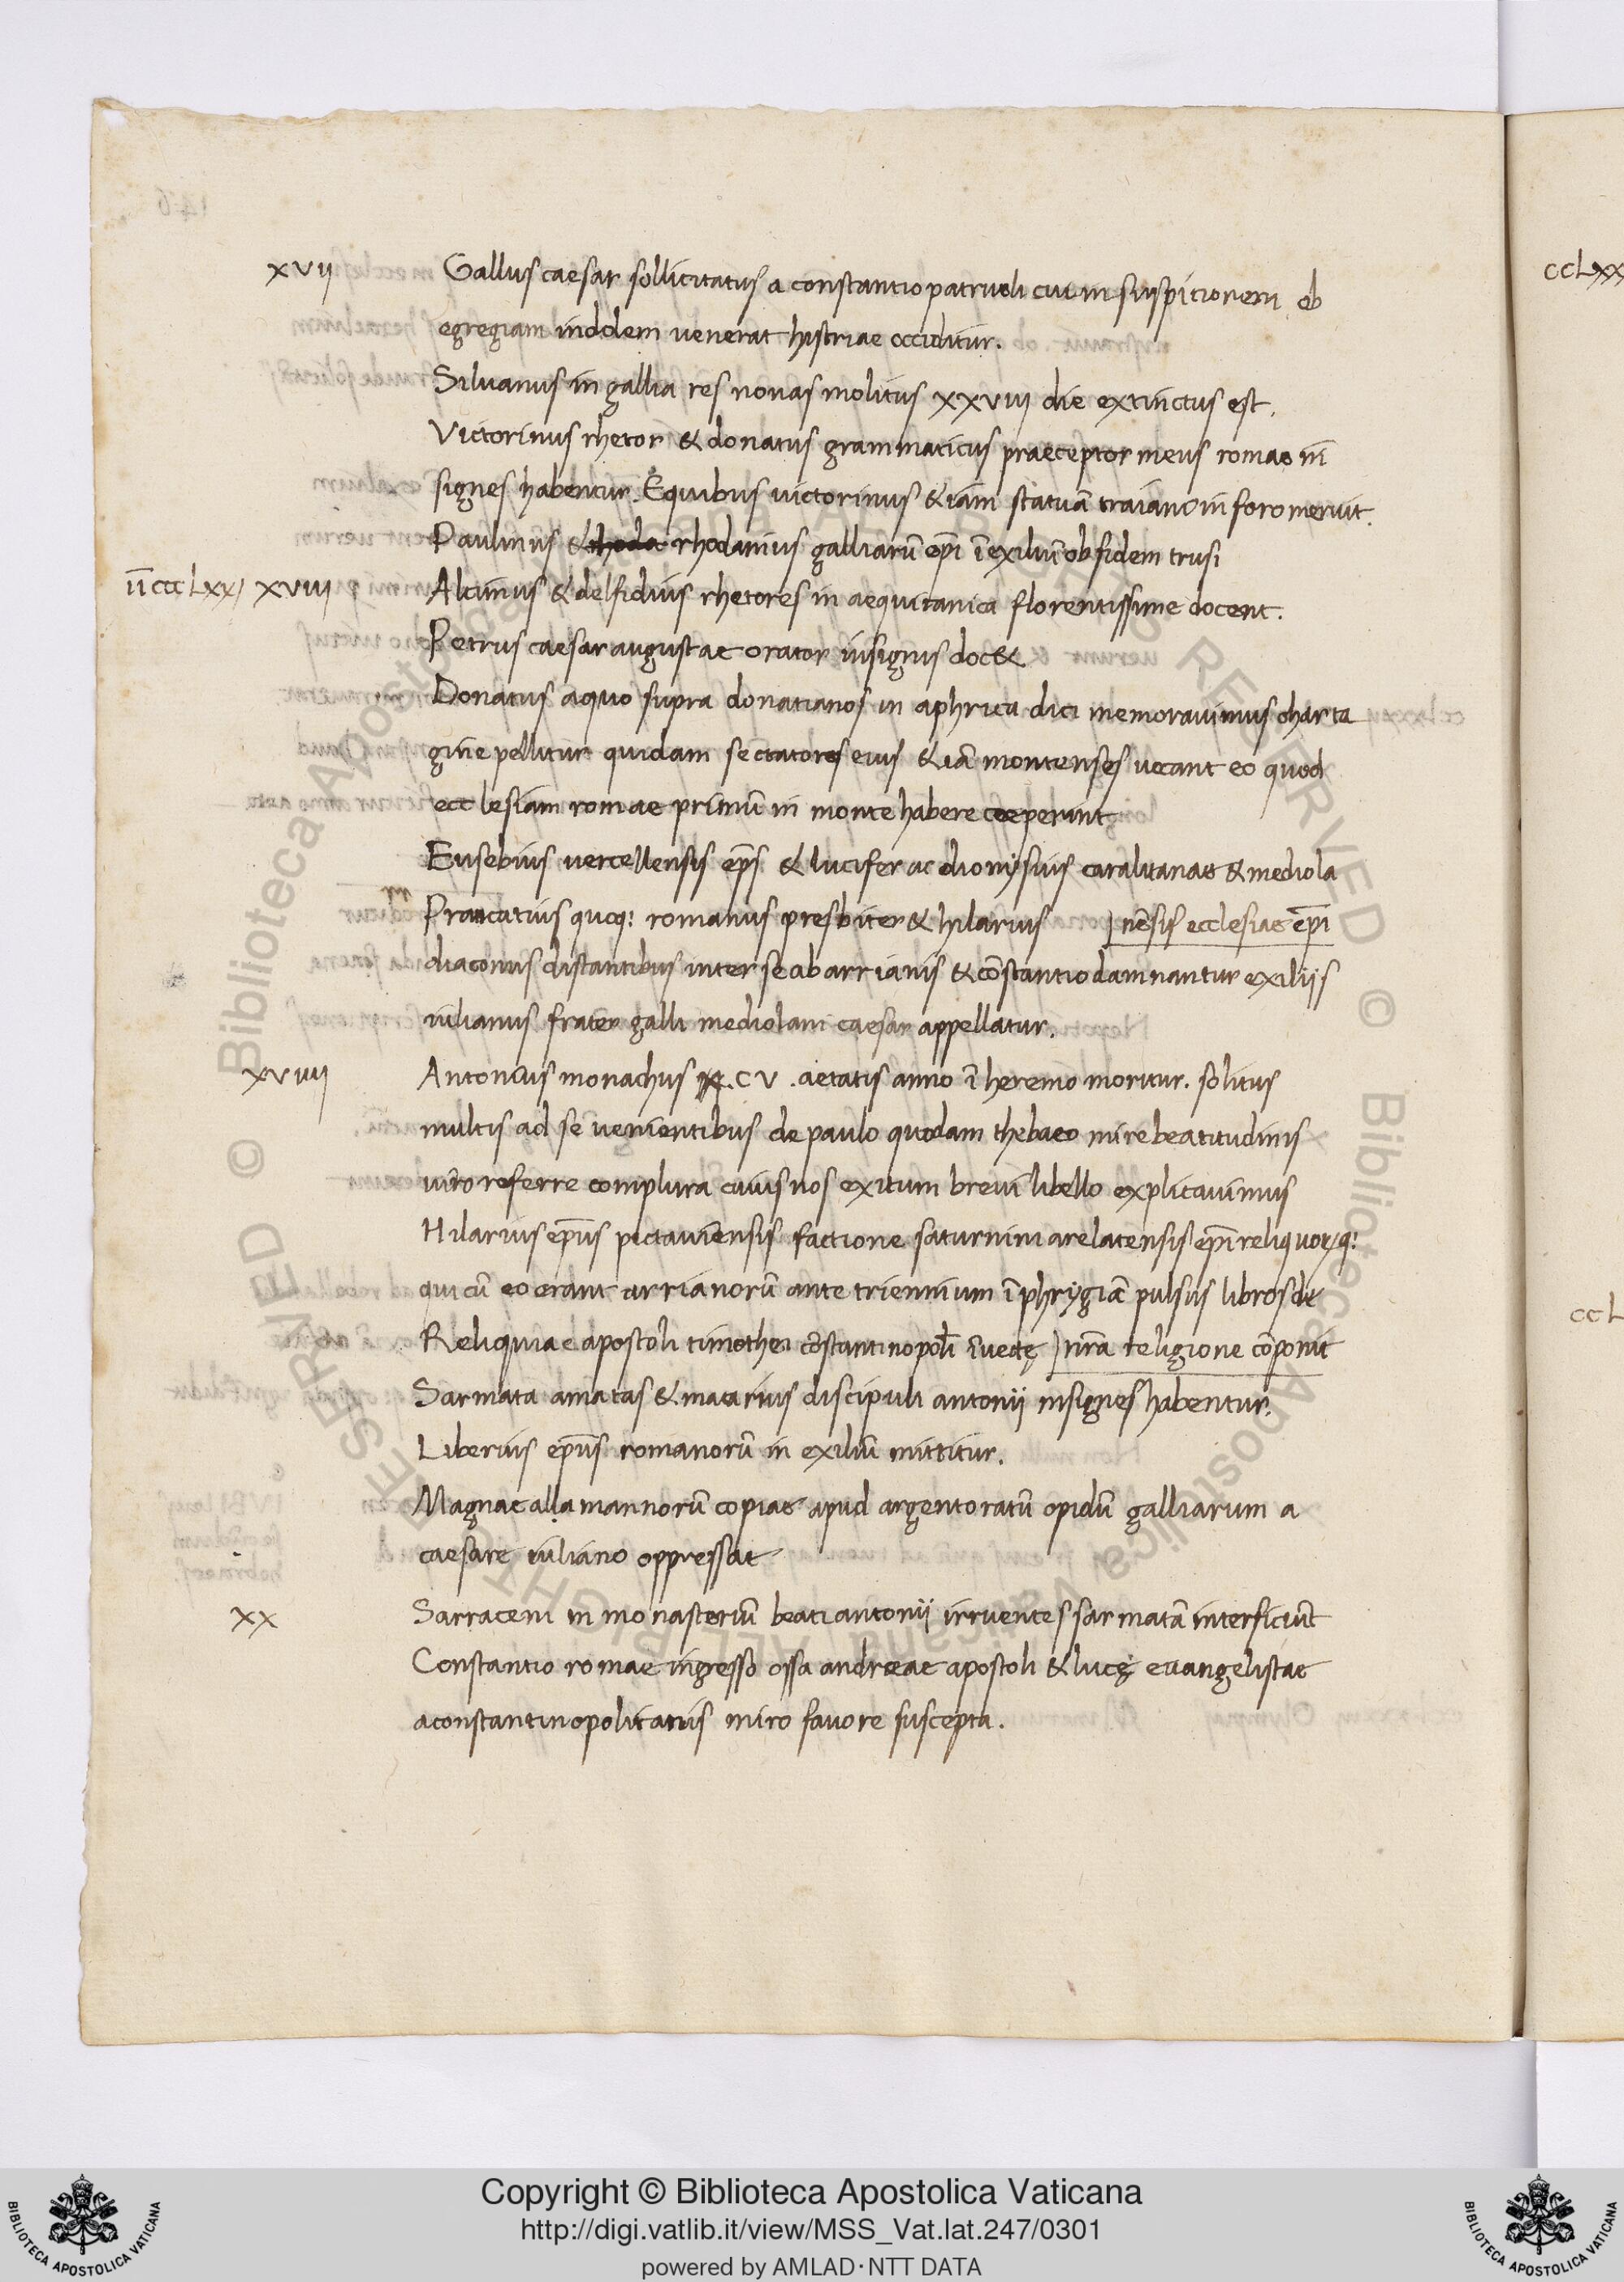 xvii Gallus caesar sollicitatus a constantio patrueli cui in suspitionem ob
egregiam indolem venerat histriae occiditur.
Siluanus in gallia res nouas molitus xxviii die extinctus est.
Victorinus rhetor & donatus grammaticus praeceptor meus romae in
signes habentur. Equibus uictorinus &iam statuã traiano in foro meruit.
Paulinus & rhodanius galliarũ ep̃i ĩ exiliũ ob fidem trusi
ĩĩccclxxi xviii Alcimus & delfidius rhetores in aequitanica florentissime docent.
Petrus caesaraugustae orator insignis doc&
Donatus aquo supra donatianos in aphrica dici memorauimus charta
gine pellitur quidam sectatores eius &iã montenses uocant eo quod
ecclesiam romae primũ in monte habere ceperint
Eusebius uercellensis ep̃s & lucifer ac dionysius caralitanae & mediola
Prancatius quoq: romanus presbiter & hilarius nẽsis ecclesiae ep̃i
diaconus distantibus inter se ab arrianis & cõstantio damnantur exiliis
iulianus frater galli mediolani caesar appellatur.
xviiii Antonius monachus .CV. aetatis anno ĩ heremo moritur. solitus
multis ad se uenientibus de paulo quodam thebaeo mire beatitudinis
uiro referre complura cuius nos exitum breui libello explicauimus
Hilarius ep̃us pictauiensis factione saturnini arelatensis ep̃i reliquorꝝq:
qui cũ eo erant arrianorũ ante triennium ĩ phrygiã pulsus libros de
Reliquiae apostoli timothei cõstantinopoli ĩuectę nr̃a religione cõponit
Sarmata amatas & macarius discipuli antonii insignes habentur.
Liberius ep̃us romanorũ in exiliũ mittitur.
Magnae allamannorũ copiae apud argentoratũ opidũ galliarum a
caesare iuliano oppressae
xx Sarraceni in monasteriũ beati antonii irruentes sarmatã interficiũt
Constantio romae ingresso ossa andreae apostoli & lucę euangelistae
aconstantinopolitanis miro fauore suscepta.
ccLxx
ccL
Copyright © Biblioteca Apostolica Vaticana
http://digi.vatlib.it/view/MSS_Vat.lat.247/0301
powered by AMLAD·NTT DATA
BIBLIOTECA APOSTOLICA VATICANA
BIBLIOTECA APOSTOLICA VATICANA